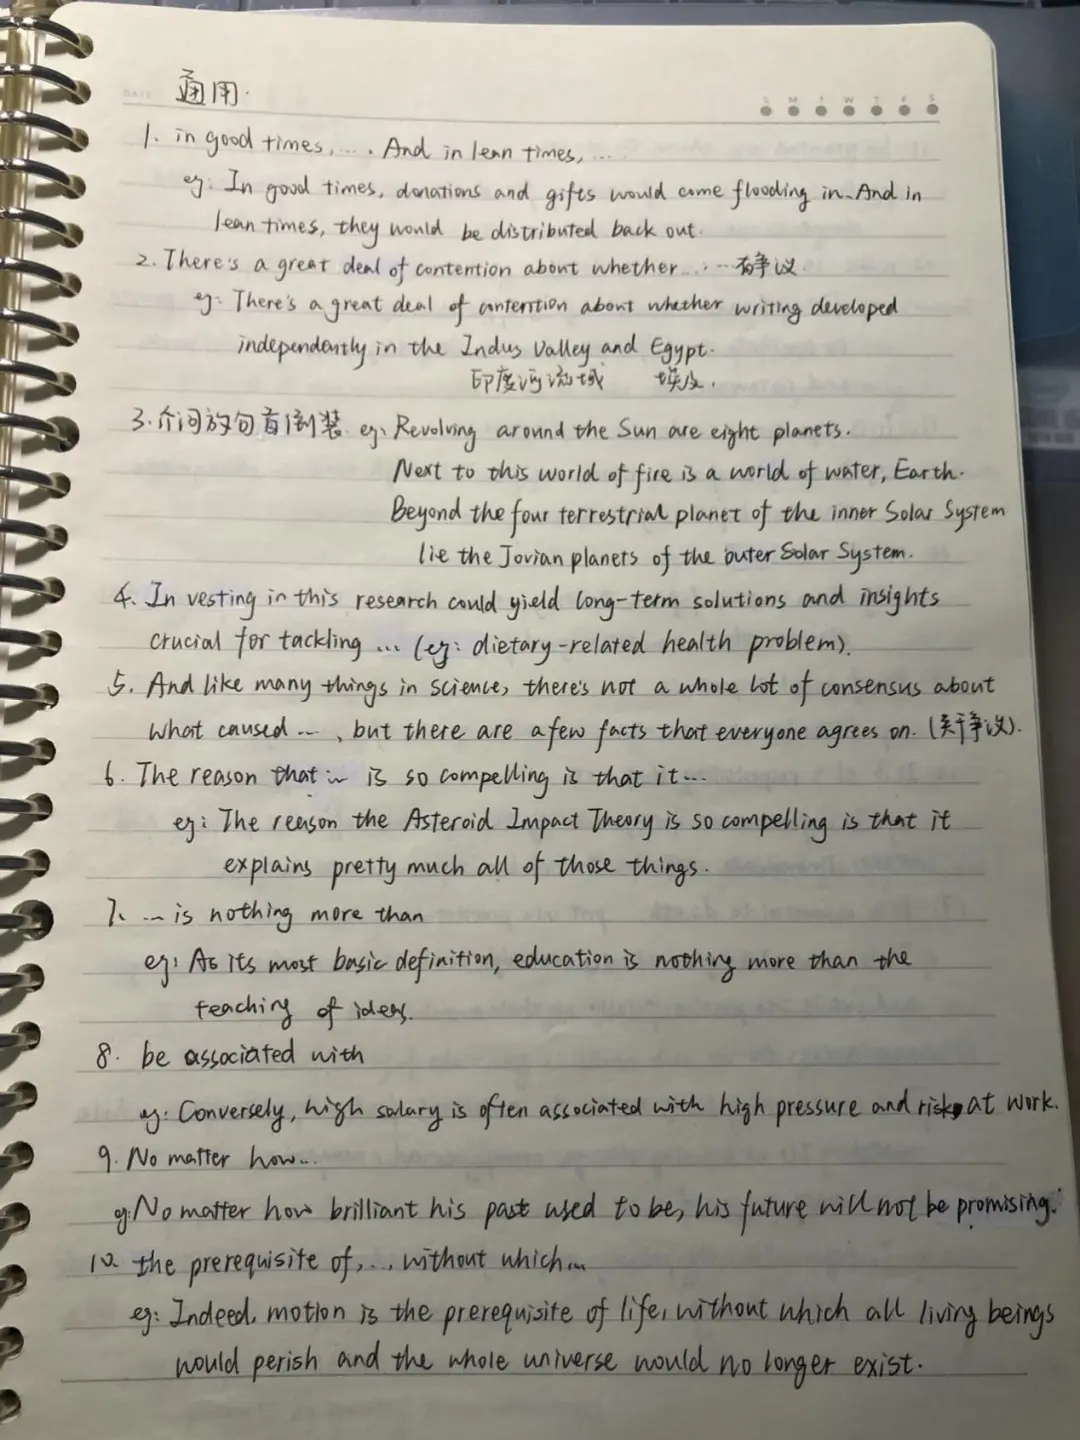 通用.
S M T W T F S
1. in good times, .... And in lean times, ...
eg: In good times, donations and gifts would come flooding in. And in
lean times, they would be distributed back out.
2. There's a great deal of contention about whether ... 有争议.
eg: There's a great deal of contention about whether writing developed
independently in the Indus Valley and Egypt.
印度河流域 埃及.
3. 介词放句首倒装. eg: Revolving around the Sun are eight planets.
Next to this world of fire is a world of water, Earth.
Beyond the four terrestrial planet of the inner Solar System
lie the Jovian planets of the outer Solar System.
4. In vesting in this research could yield long-term solutions and insights
crucial for tackling ... (eg: dietary-related health problem).
5. And like many things in science, there's not a whole lot of consensus about
what caused ..., but there are a few facts that everyone agrees on. (争议).
6. The reason that ... is so compelling is that it...
eg: The reason the Asteroid Impact Theory is so compelling is that it
explains pretty much all of those things.
7. ... is nothing more than
eg: As its most basic definition, education is nothing more than the
teaching of ideas.
8. be associated with
eg: Conversely, high salary is often associated with high pressure and risk at work.
9. No matter how...
eg: No matter how brilliant his past used to be, his future will not be promising.
10. the prerequisite of, ..., without which...
eg: Indeed, motion is the prerequisite of life, without which all living beings
would perish and the whole universe would no longer exist.